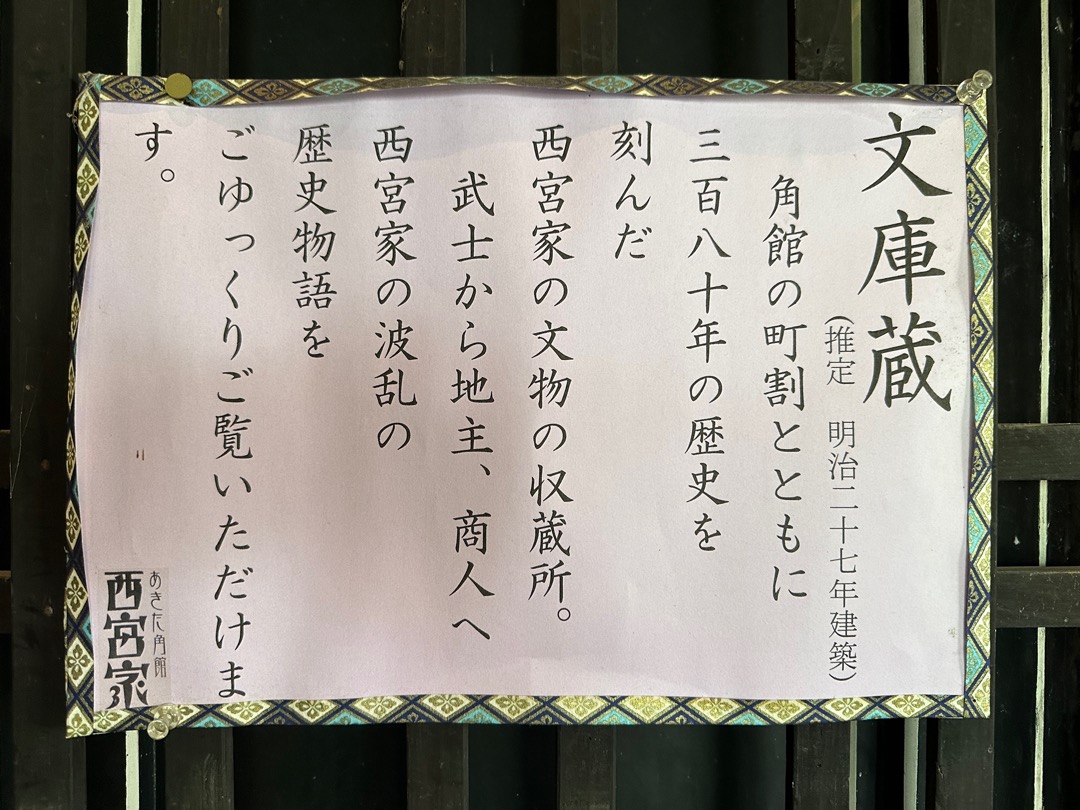 文庫蔵
（推定　明治二十七年建築）
角館の町割とともに
三百八十年の歴史を
刻んだ
西宮家の文物の収蔵所。
武士から地主、商人へ
西宮家の波乱の
歴史物語を
ごゆっくりご覧いただけま
す。
あきた角館
西宮家